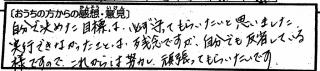 [おうちの方からの感想・意見]
自分で決めた目標は、必ず守ってもらいたいと思いました。
実行できなかったことは、残念ですが、自分でも反省している
様ですので、これからは努力し、頑張ってもらいたいです。